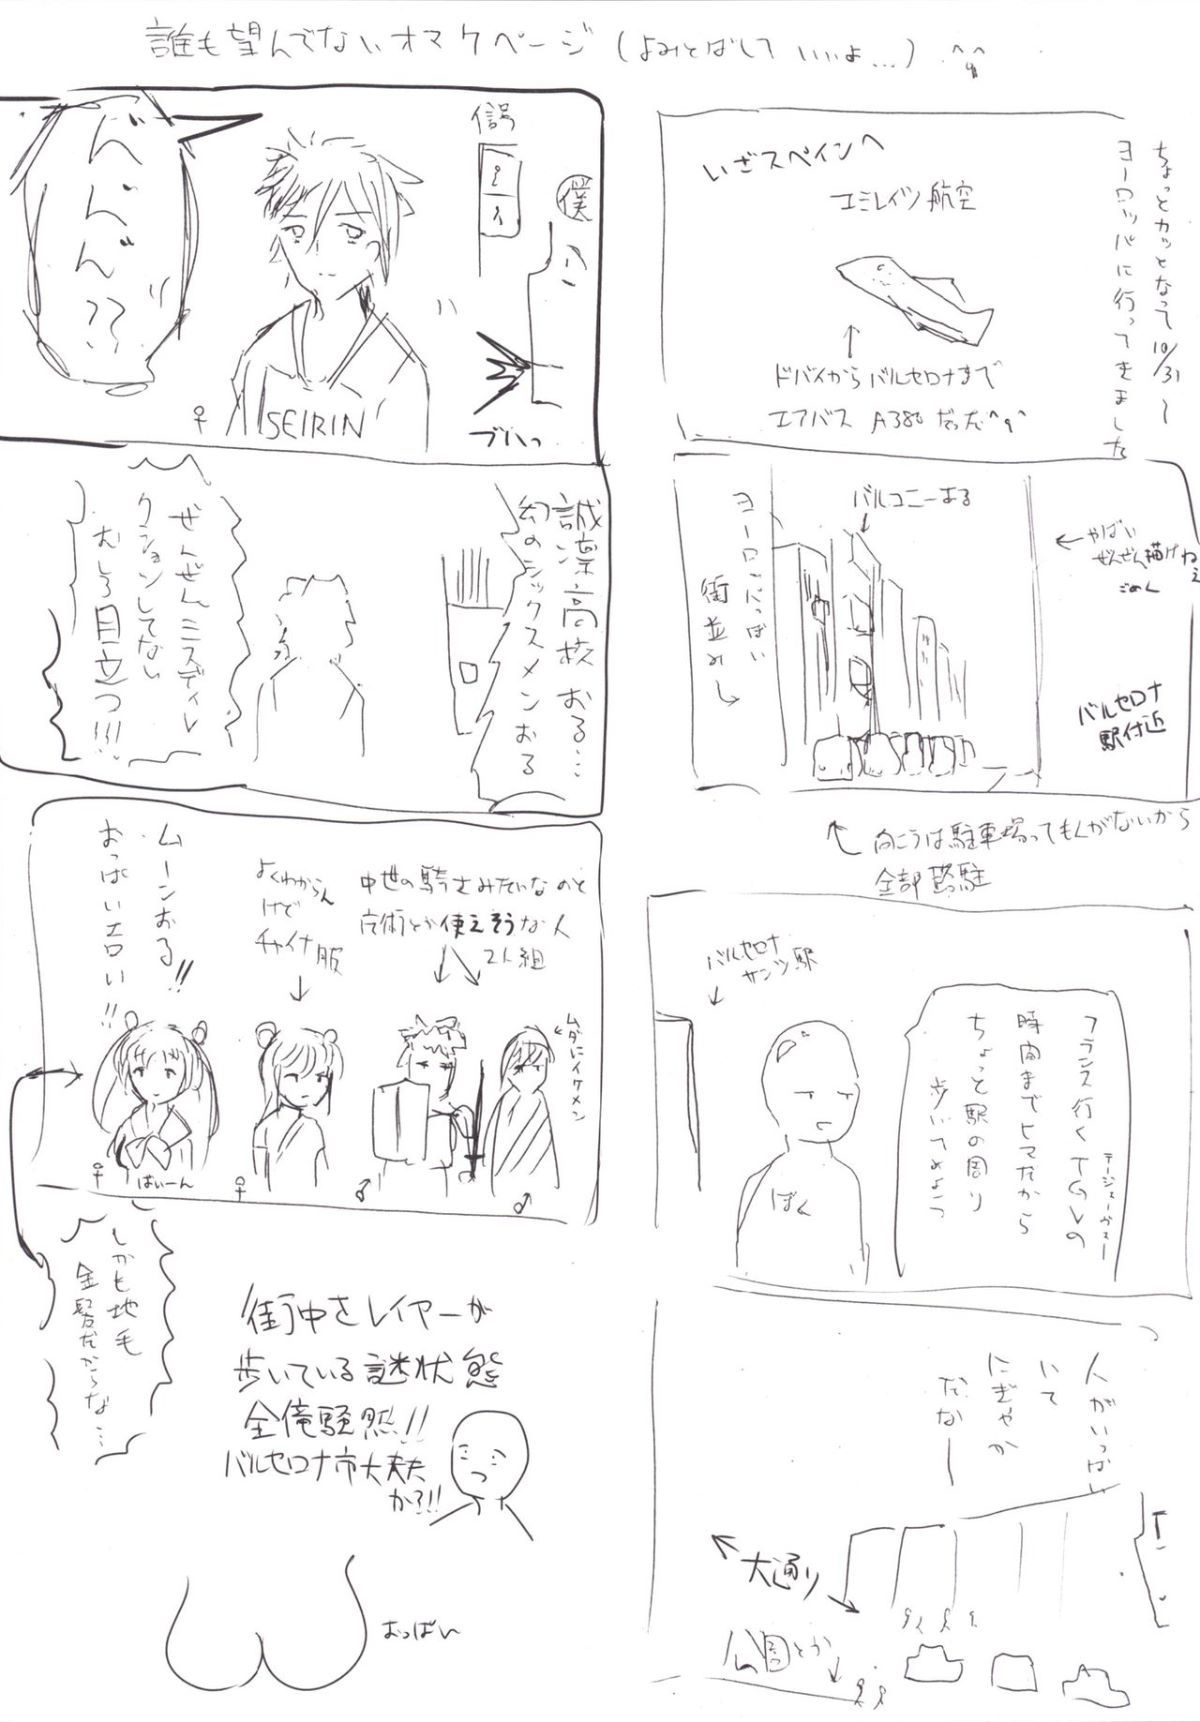 誰も望んでないオマケページ(よみとばしていいよ…)^q^
ちょっとカッとなって10/31〜
ヨーロッパに行ってきました
いざスペインへ
エミレイツ航空
ドバイからバルセロナまで
エアバス A380だった^q^
バルコニーある
ヨーロッパっぽい
街並み
やばい
ぜんぜん描けねぇ
ごめん
バルセロナ
駅付近
向こうは駐車場ってもんがないから
全部路駐
バルセロナ
サンツ駅
フランス行くTGVの
テージェーヴェー
時間までヒマだから
ちょっと駅の周り
歩いてみよっ
ぼく
人がいっぱい
いて
にぎやか
だなー
大通り
公園とか
信号
僕
べんべん??
SEIRIN
♀
ブハっ
誠凛高校おる…
幻のシックスメンおる
ぜんぜんミスディレ
クションしてない
むしろ目立つ!!!
中世の騎士みたいなのと
魔術とか使えそうな人
2人組
ムダにイケメン
よくわからん
けど
チャイナ服
ムーンおる!!
おっぱいエロい!!
ばいーん
♀
♀
♂
♂
しかも地毛
金髪だからな…
街中をレイヤーが
歩いている謎状態
全俺騒然!!
バルセロナ市大丈夫
か?!!
おっぱい